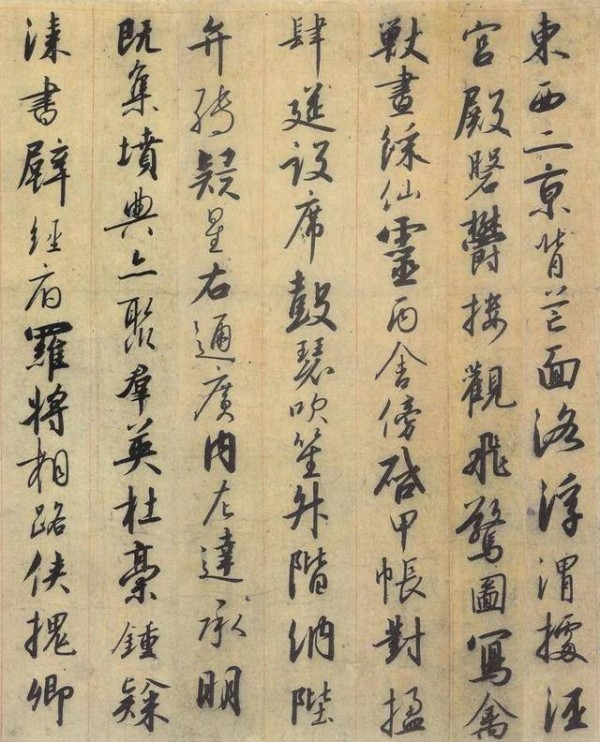 東西二京背芒面洛浮渭據涇
宮殿磐欝樓觀飛驚圖寫禽
獸畫綵仙靈丙舍傍啓甲帳對楹
肆筵設席鼓瑟吹笙升階納陛
弁轉疑星右通廣內左達承明
既集墳典亦聚羣英杜稾鍾隸
漆書壁經府羅將相路俠槐卿